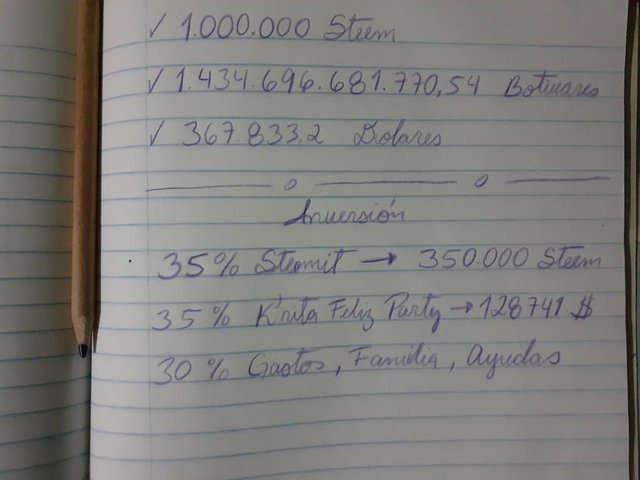 ✓ 1.000.000 Steem
✓ 1.434.696.681.770,54 Bolivares
✓ 367.833,2 Dolares
Inversión
35% Steemit → 350.000 Steem
35% K'rita Feliz Party → 128741 $
30 % Gastos, Familia, Ayudas